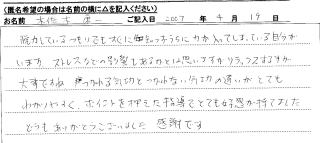 (匿名希望の場合は名前の横に△を記入ください)
お名前 本佐木 ご記入日 2007 年 4 月 19 日
脱力しているつもりでもすぐに知らずうちに力が入ってしまっている自分が
います。ストレスなどの影響もあるかとは思いますがリラックスするすが
大事ですね つかれる気功とつかれない気功の違いがとても
わかりやすく、ポイントを押えた指導でとても好感が持てました
どうもありがとうございました 感謝です